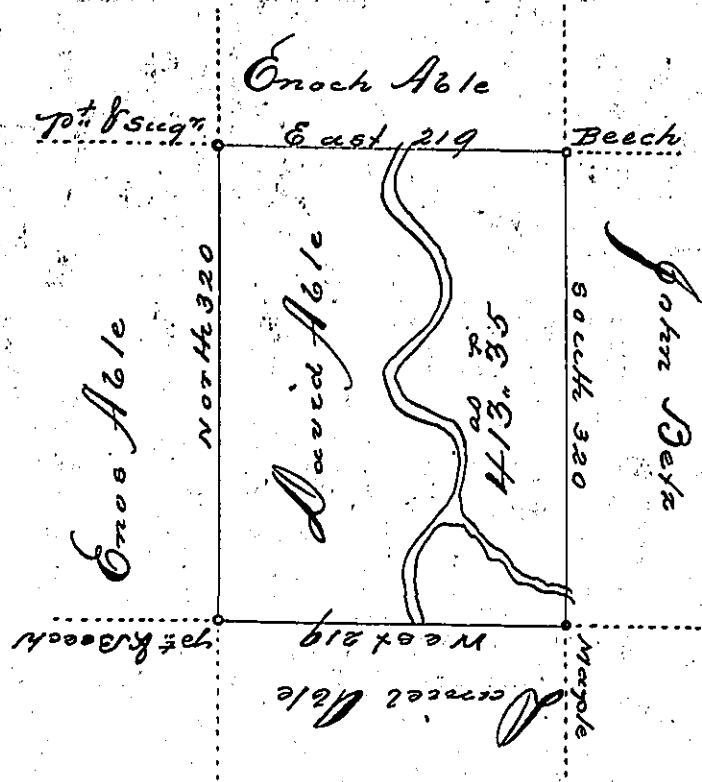 Enoch Able
pt. & sugr.
East 219
Beech
North 320
Enos Able
David Able
413" 35
South 320
John Betz
pt. & Beech
West 219
Maple
Daniel Able